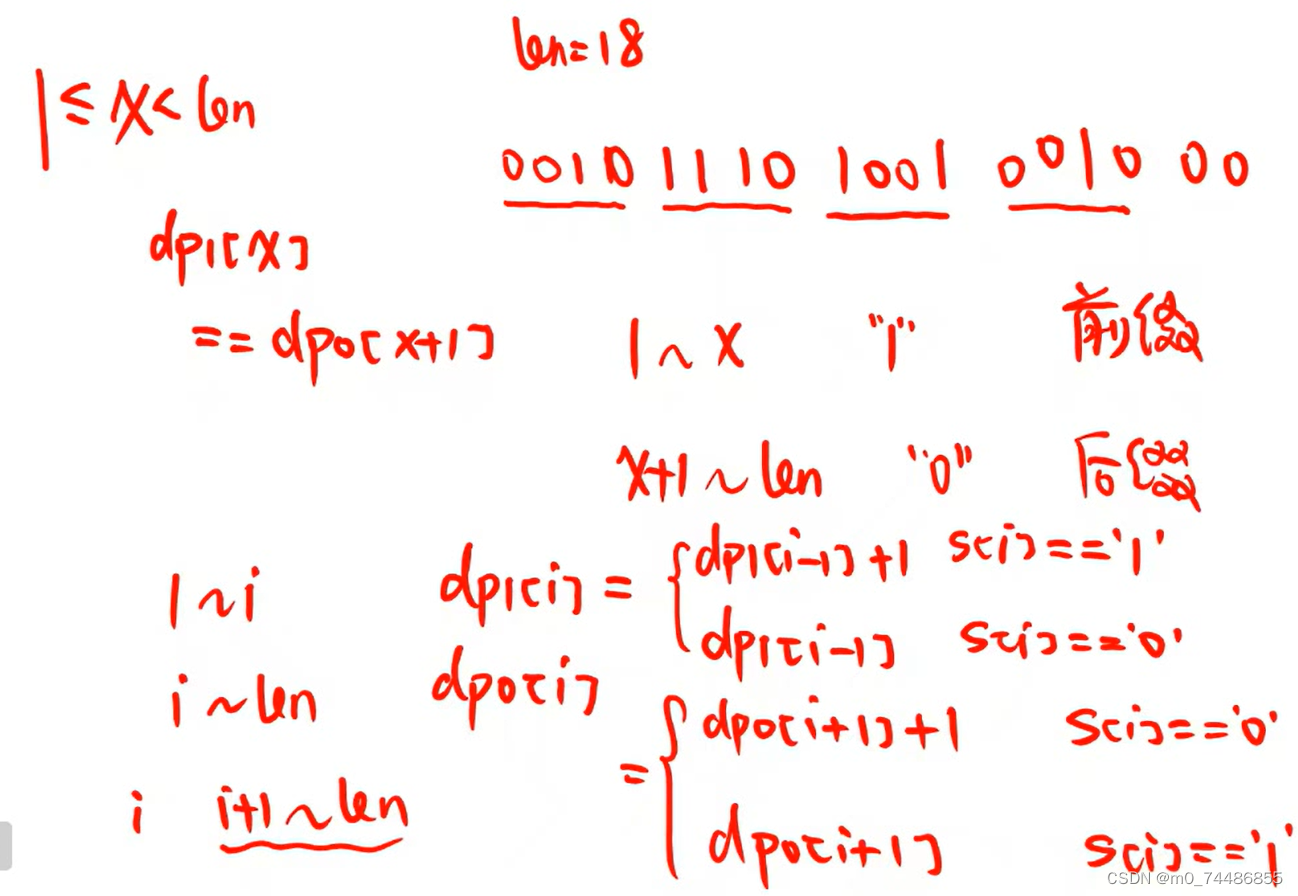 len=18
1≤x<len
0010 1110 1001 0010 00
dp1[x]
== dp0[x+1]
1~x "1" 前缀
x+1~len "0" 后缀
1~i dp1[i] = { dp1[i-1]+1 s[i]=='1'
dp1[i-1] s[i]=='0'
i~len dp0[i]
= { dp0[i+1]+1 s[i]=='0'
i i+1~len
dp0[i+1] s[i]=='1'
CSDN @m0_74486855